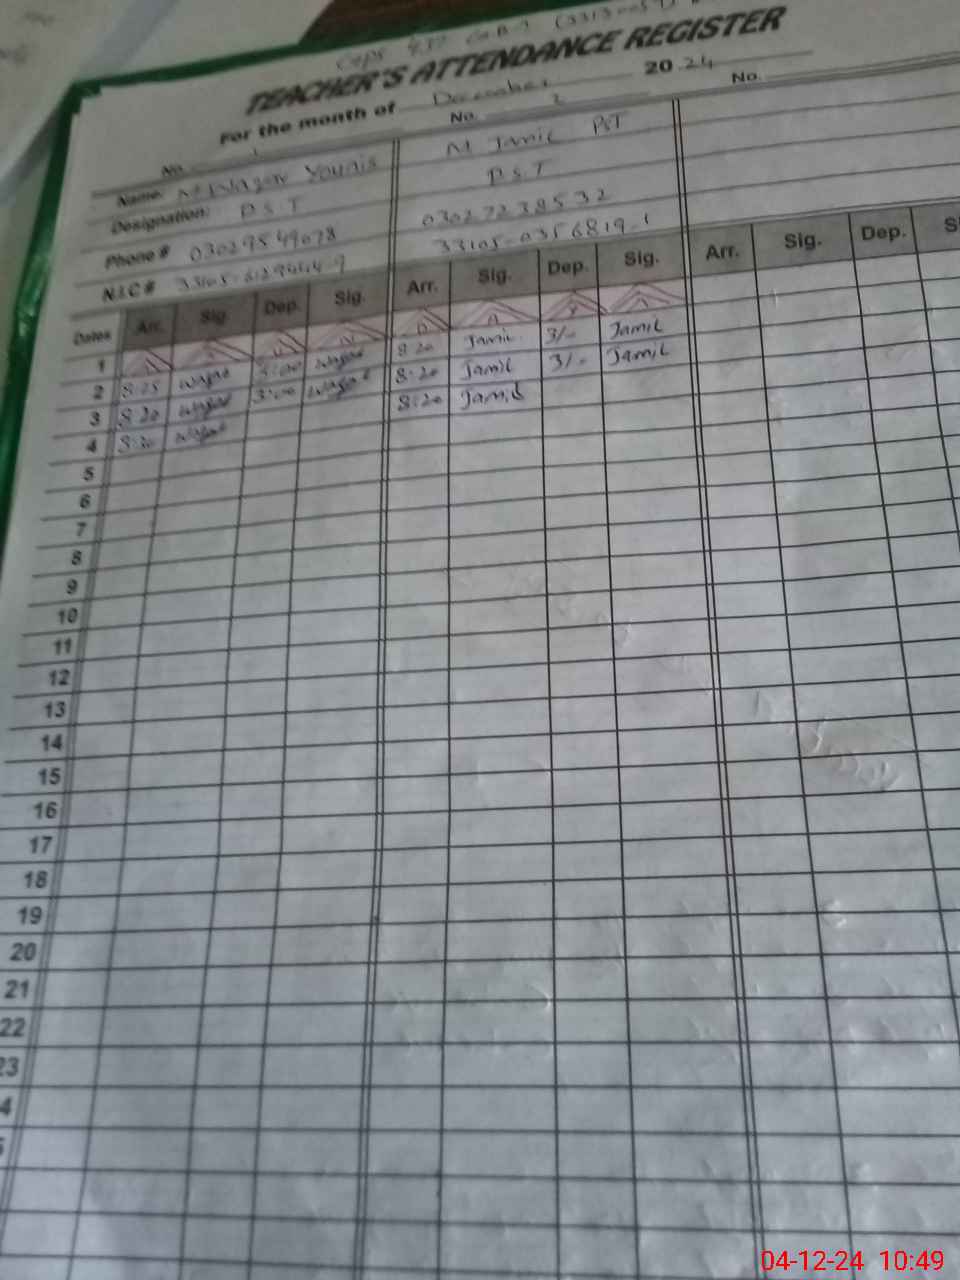 TEACHER'S ATTENDANCE REGISTER
For the month of December 2024
No. 1 No. 2 No.
Name: M Waqar Younis M Jamil PST
Designation: P.S.T P.S.T
Phone # 03029549078 03027238532
N.I.C # 33105-0356819-1
Dates Arr. Sig. Dep. Sig. Arr. Sig. Dep. Sig. Arr. Sig. Dep.
1 S U N D A Y
2 8:25 waqar 3:00 waqar 8:20 Jamil 3/- Jamil
3 8:20 waqar 3:00 waqar 8:20 Jamil 3/- Jamil
4 8:20 waqar 8:20 Jamil
5
6
7
8
9
10
11
12
13
14
15
16
17
18
19
20
21
22
23
04-12-24 10:49